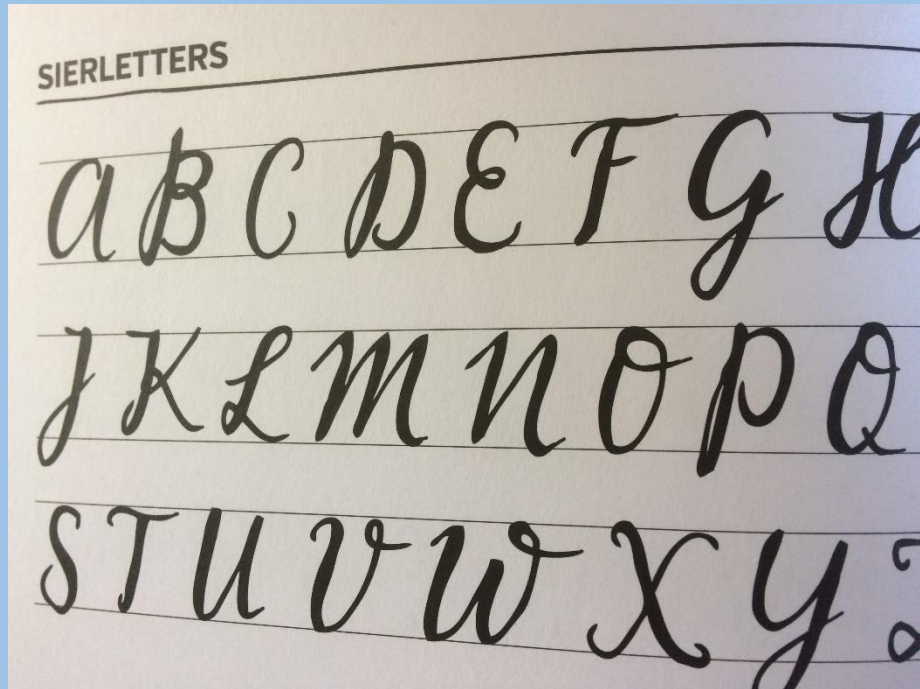 SIERLETTERS
A B C D E F G H
J K L M N O P Q
S T U V W X Y Z